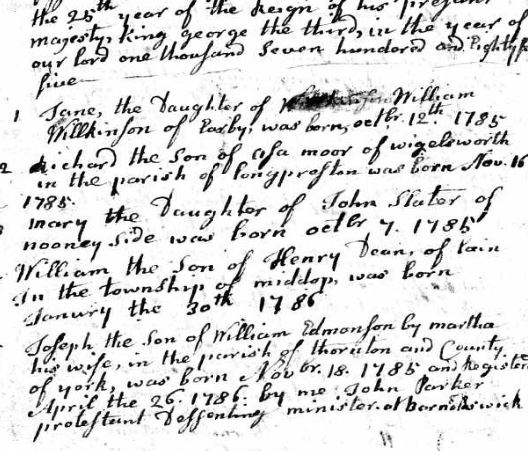 the 25th year of the Reign of his present
majesty, King george the third, in the year of
our lord one thousand Seven hundered and Eighty
five
1 Jane, the Daughter of William
Willkinson of Earby, was born, octbr. 12th 1785
2 Richard the Son of Asa moor of wigelsworth
in the parish of longpreston was born Nov. 16
1785.
mary the Daughter of John Slater of
nooney Side was born octbr 7. 1785
William the Son of Henry Dean, of lain
In the township of middop, was born
Janury the 30th 1786
Joseph the Son of William Edmonson by martha
his wife, in the parish of thornton and County
of york, was born Novbr. 18. 1785 and Register
April the 26. 1786. by me John Parker
protestant Dessenting minister. at Barnoldswick